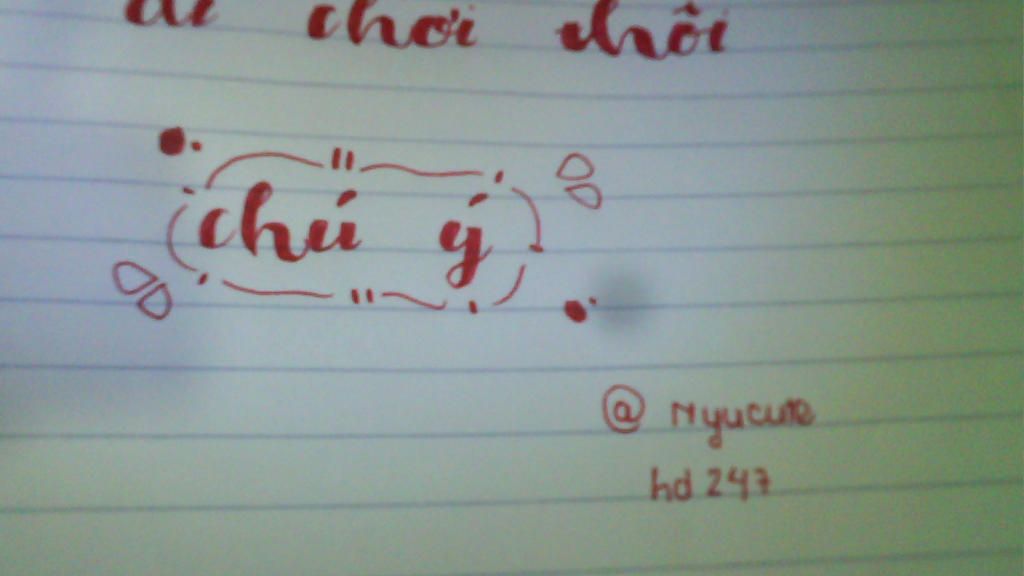 đi chơi thôi
chú ý
@ Myucute
hd 247